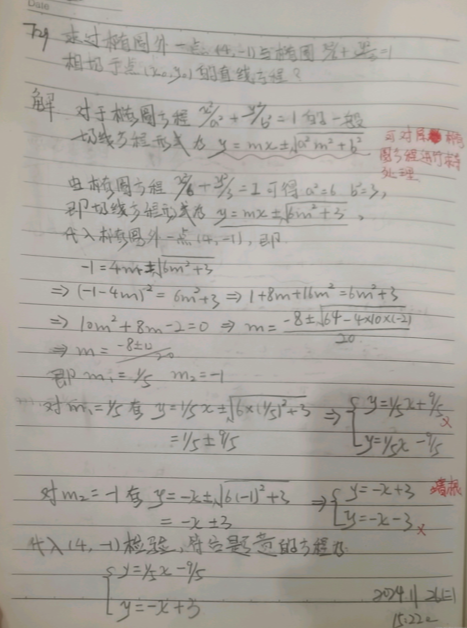 Date
求过椭圆外一点(4,-1)与椭圆 x²/6 + y²/3 = 1
相切于点(x₀,y₀)的直线方程?
解 对于椭圆方程 x²/a² + y²/b² = 1 的一般
切线方程形式为 y=mx±√a²m²+b²
可对
圆方程进行
处理
由椭圆方程 x²/6 + y²/3 = 1 可得 a²=6 b²=3,
即切线方程形式为 y=mx±√6m²+3,
代入椭圆外一点(4,-1),即
-1=4m±√6m²+3
⇒ (-1-4m)² = 6m²+3 ⇒ 1+8m+16m²=6m²+3
⇒ 10m²+8m-2=0 ⇒ m= -8±√64-4×10×(-2) / 20
⇒ m= -8±12/20
即 m₁=1/5 m₂=-1
对m₁=1/5有 y=1/5x±√6×(1/5)²+3 ⇒ { y=1/5x+9/5 ×
=1/5±9/5 y=1/5x-9/5
对m₂=-1有 y=-x±√6(-1)²+3 ⇒ { y=-x+3 增根
=-x±3 y=-x-3 ×
代入(4,-1)检验,符合题意的方程为
{ y=1/5x-9/5
y=-x+3
2024 11 26
15:22